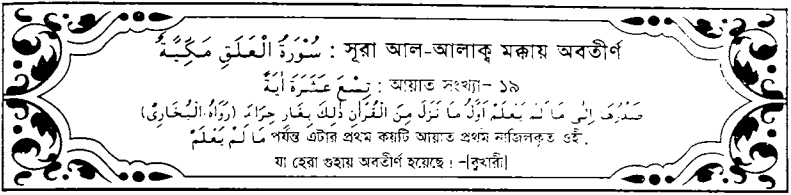 سُوْرَةُ الْعَلَقِ مَكِّيَّةٌ : সূরা আল-আলাক্ব মক্কায় অবতীর্ণ
تِسْعَ عَشَرَةَ اٰيَةً : আয়াত সংখ্যা- ১৯
صَدْرُهَا اِلٰى مَا لَمْ يَعْلَمْ اَوَّلُ مَا نَزَلَ مِنَ الْقُرْاٰنِ ذٰلِكَ بِغَارِ حِرَاءَ (رَوَاهُ الْبُخَارِىْ)
مَا لَمْ يَعْلَمْ পর্যন্ত এটার প্রথম কয়টি আয়াত প্রথম নাজিলকৃত ওহী,
যা হেরা গুহায় অবতীর্ণ হয়েছে। -[বুখারী]